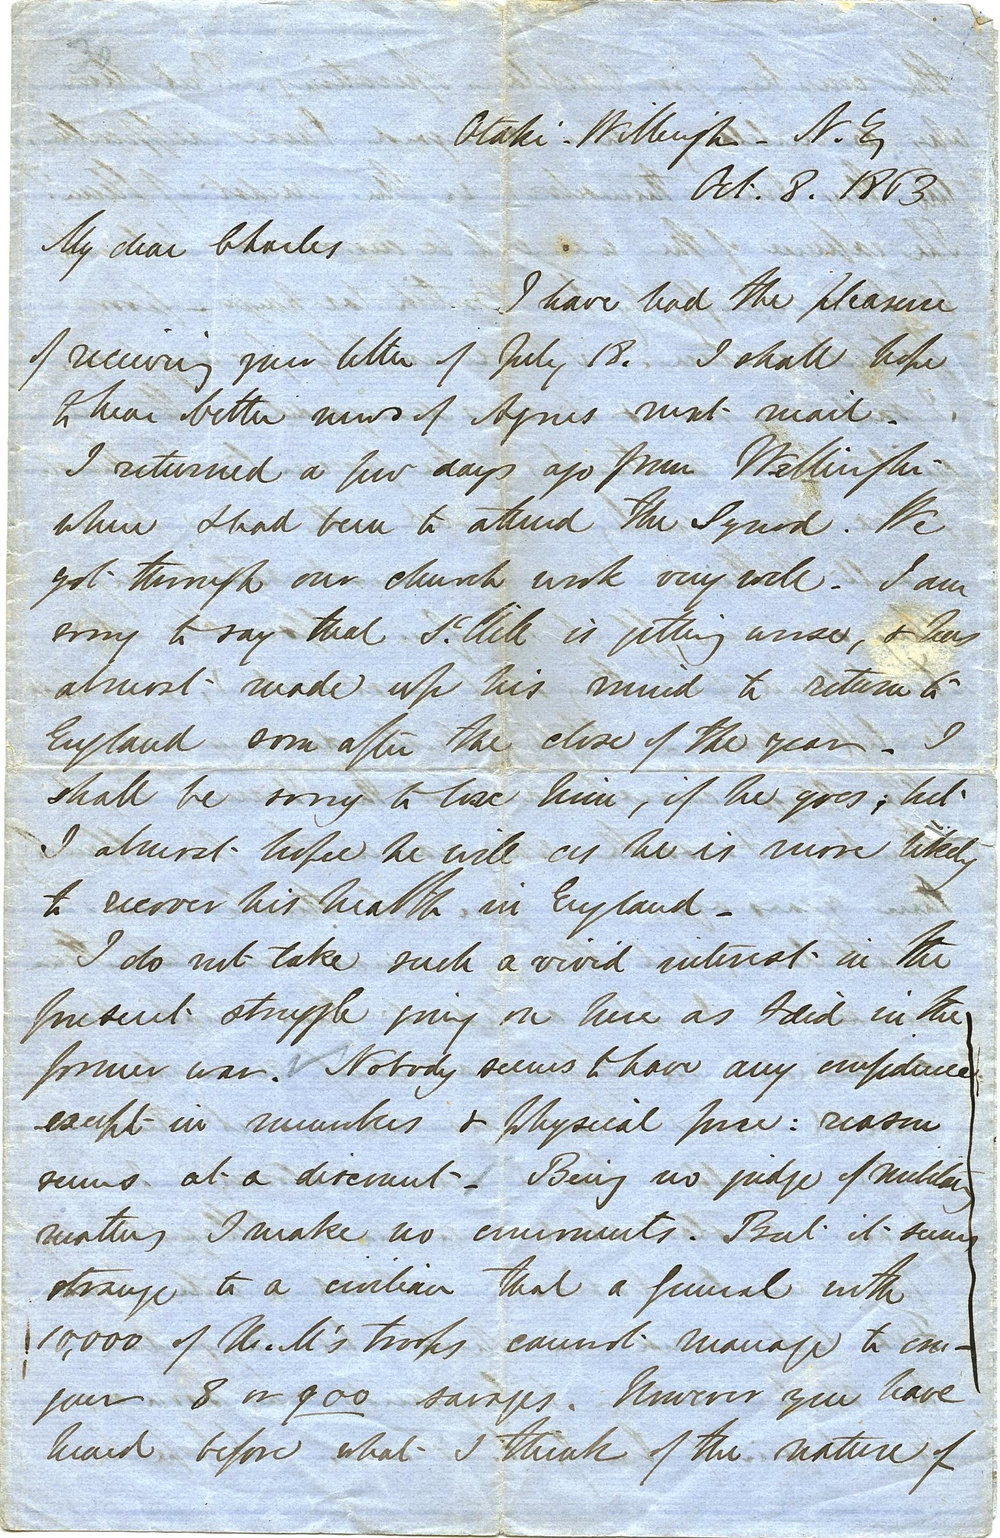 Otaki - Wellington - N. Z
Oct. 8. 1863
My dear Charles
I have had the pleasure
of receiving your letter of July 18. I shall hope
to hear better news of Agnes next mail -
I returned a few days ago from Wellington
where I had been to attend the Synod. We
got through our church work very well - I am
sorry to say that St. Hill is getting worse, & has
almost made up his mind to return to
England soon after the close of the year - I
shall be sorry to lose him, if he goes; but
I almost hope he will as he is more likely
to recover his health in England -
I do not take such a vivid interest in the
present struggle going on here as I did in the
former war. Nobody seems to have any confidence
except in numbers & physical force: reason
seems at a discount - Being no judge of military
matters I make no comments. But it seems
strange to a civilian that a General with
10,000 of H.M's troops cannot manage to con-
quer 8 or 900 savages. However you have
heard before what I think of the nature of